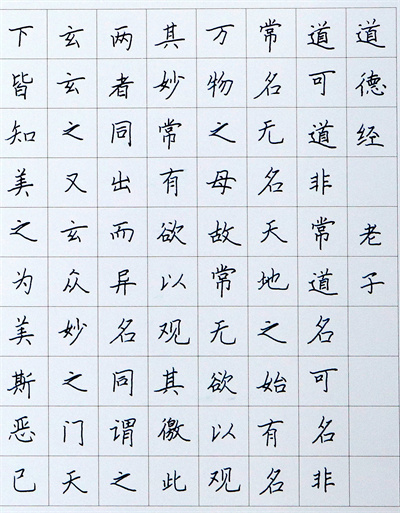 道德经 老子
道可道非常道名可名非
常名无名天地之始有名
万物之母故常无欲以观
其妙常有欲以观其徼此
两者同出而异名同谓之
玄玄之又玄众妙之门天
下皆知美之为美斯恶已